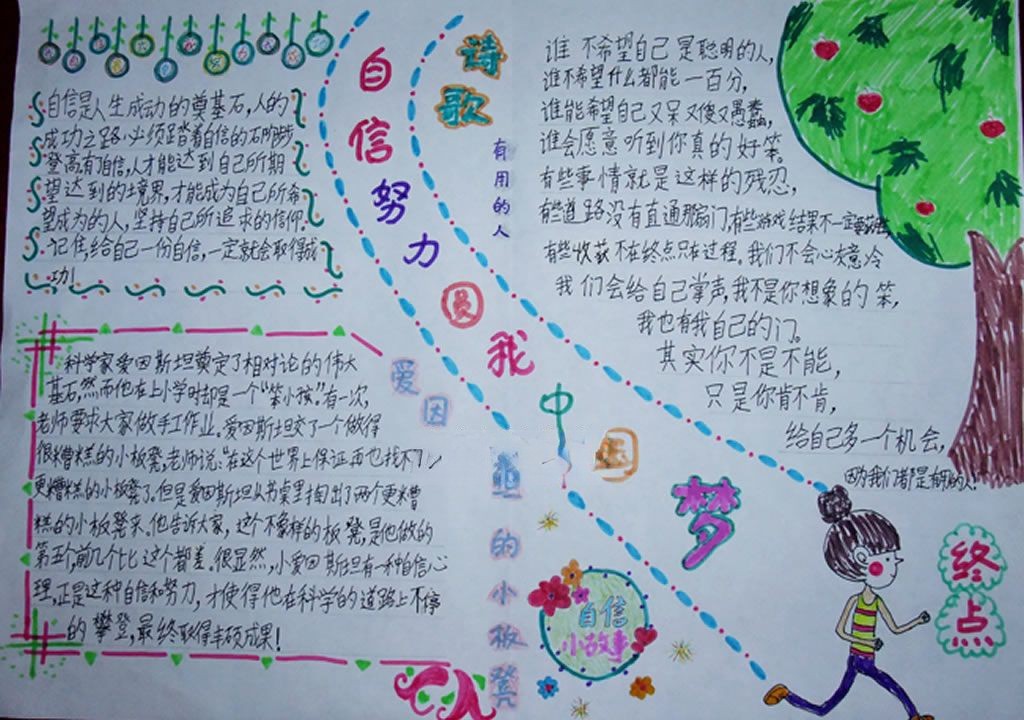 自信是人生成动的奠基石,人的
成功之路必须踏着自信的石阶步
登高有了自信,人才能达到自己所期
望达到的境界,才能成为自己所希
望成为的人,坚持自己所追求的信仰。
记住,给自己一份自信,一定就会取得成
功!
自信努力圆我中国梦
诗歌
有用的人
谁不希望自己是聪明的人,
谁不希望什么都能一百分,
谁能希望自己又呆又傻又愚蠢,
谁会愿意听到你真的好笨。
有些事情就是这样的残忍,
有些道路没有直通那扇门,有些游戏结果不一定
有些收获不在终点只在过程。我们不会心灰意冷
我们会给自己掌声,我不是你想象的笨,
我也有我自己的门。
其实你不是不能,
只是你肯不肯,
给自己多一个机会,
因为我们都是有用的人!
爱因
坦的小板凳
科学家爱因斯坦奠定了相对论的伟大
基石,然而他在上小学时却是一个“笨小孩”。有一次,
老师要求大家做手工作业。爱因斯坦交了一个做得
很糟糕的小板凳,老师说:“在这个世界上保证再也找不
更糟糕的小板凳了。但是爱因斯坦从书桌里掏出了两个更糟
糕的小板凳来。他告诉大家,这个不像样的板凳是他做的
第五个,前几个比这个都差。很显然,小爱因斯坦有一种自信心
理,正是这种自信和努力,才使得他在科学的道路上不停
的攀登,最终取得丰硕成果!
自信
小故事
终点